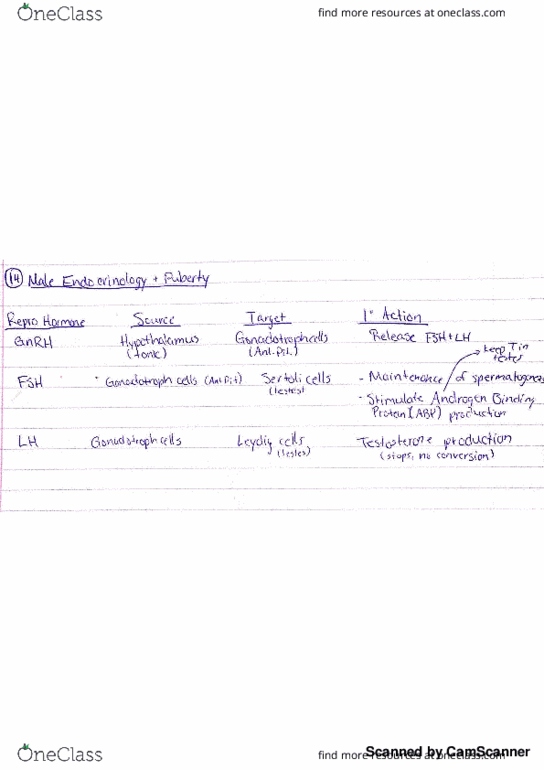 OneClass
find more resources at oneclass.com
14 Male Endocrinology + Puberty
Repro Hormone Source Target 1° Action
GnRH Hypothalamus Gonadotroph cells Release FSH+LH
(tonic) (Ant. Pit.)
keep T in
testes
FSH Gonadotroph cells (Ant Pit) Sertoli cells - Maintenance of spermatogenes
(testes) - Stimulate Androgen Binding
Protein (ABP) production
LH Gonadotroph cells Leydig cells Testosterone production
(testes) (stops, no conversion)
OneClass
find more resources at oneclass.com
Scanned by CamScanner